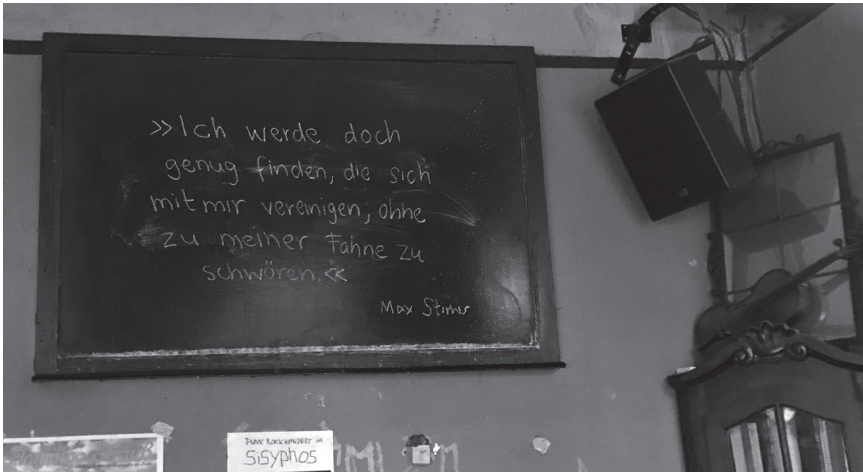 »Ich werde doch
genug finden, die sich
mit mir vereinigen, ohne
zu meiner Fahne zu
schwören.«
Max Stirner
PUNK ROCK KONZERT IM
SiSYPHOS